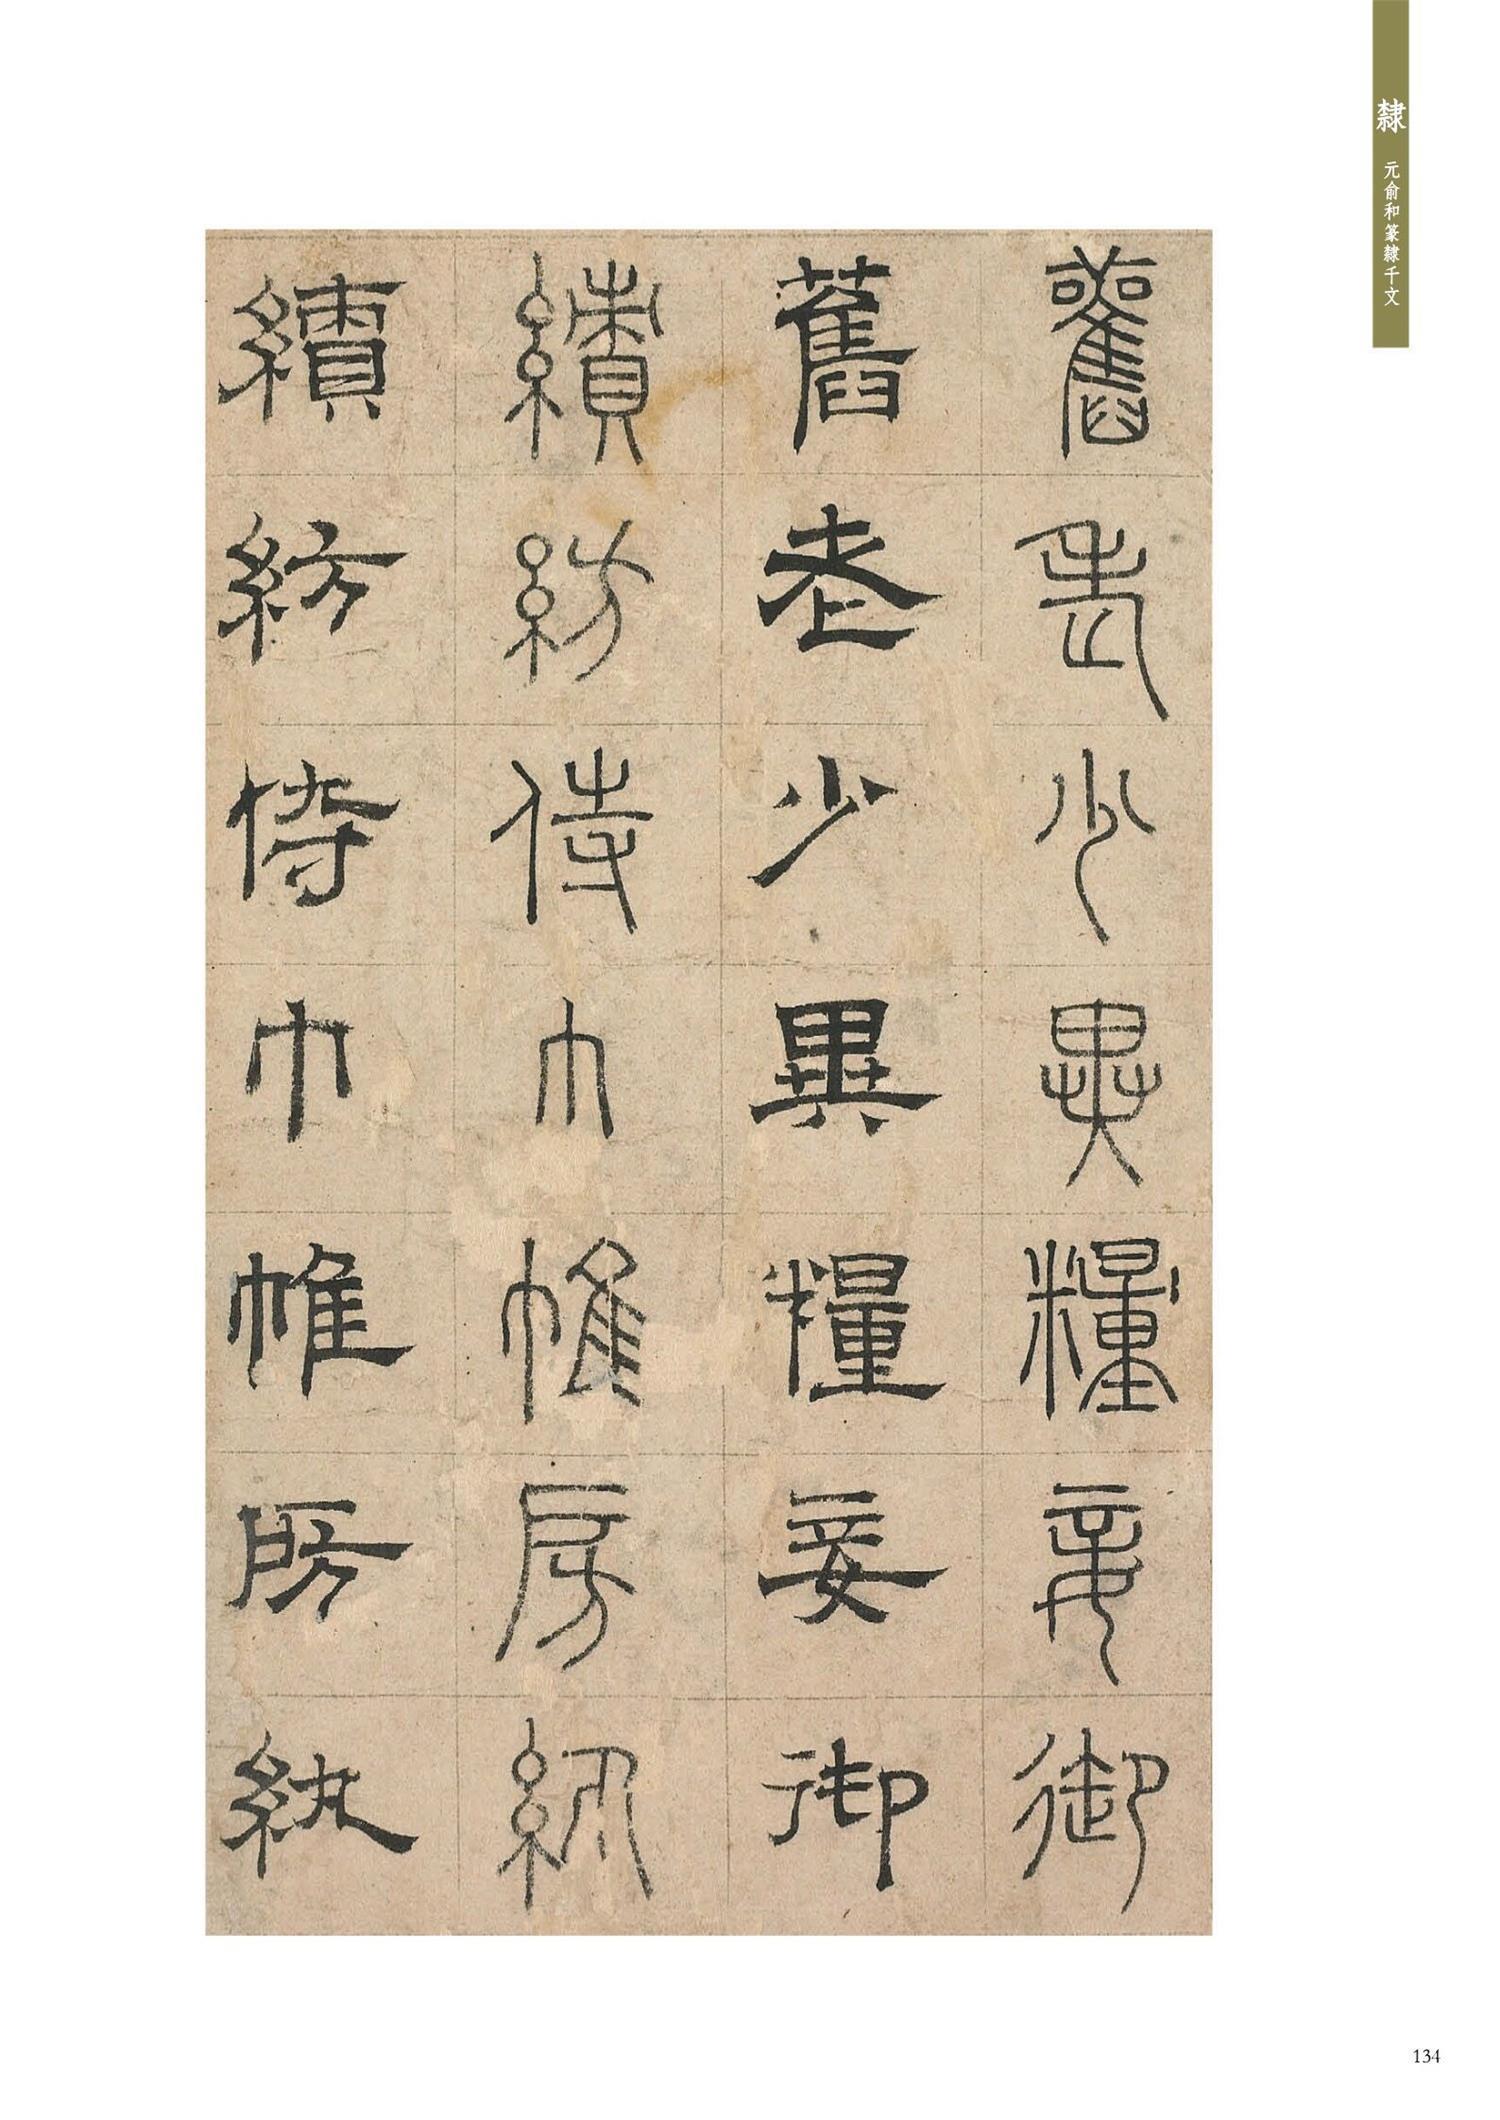 隸 元俞和篆隸千文
舊老少異糧妾御
舊老少異糧妾御
績紡侍巾帷房紈
績紡侍巾帷房紈
134